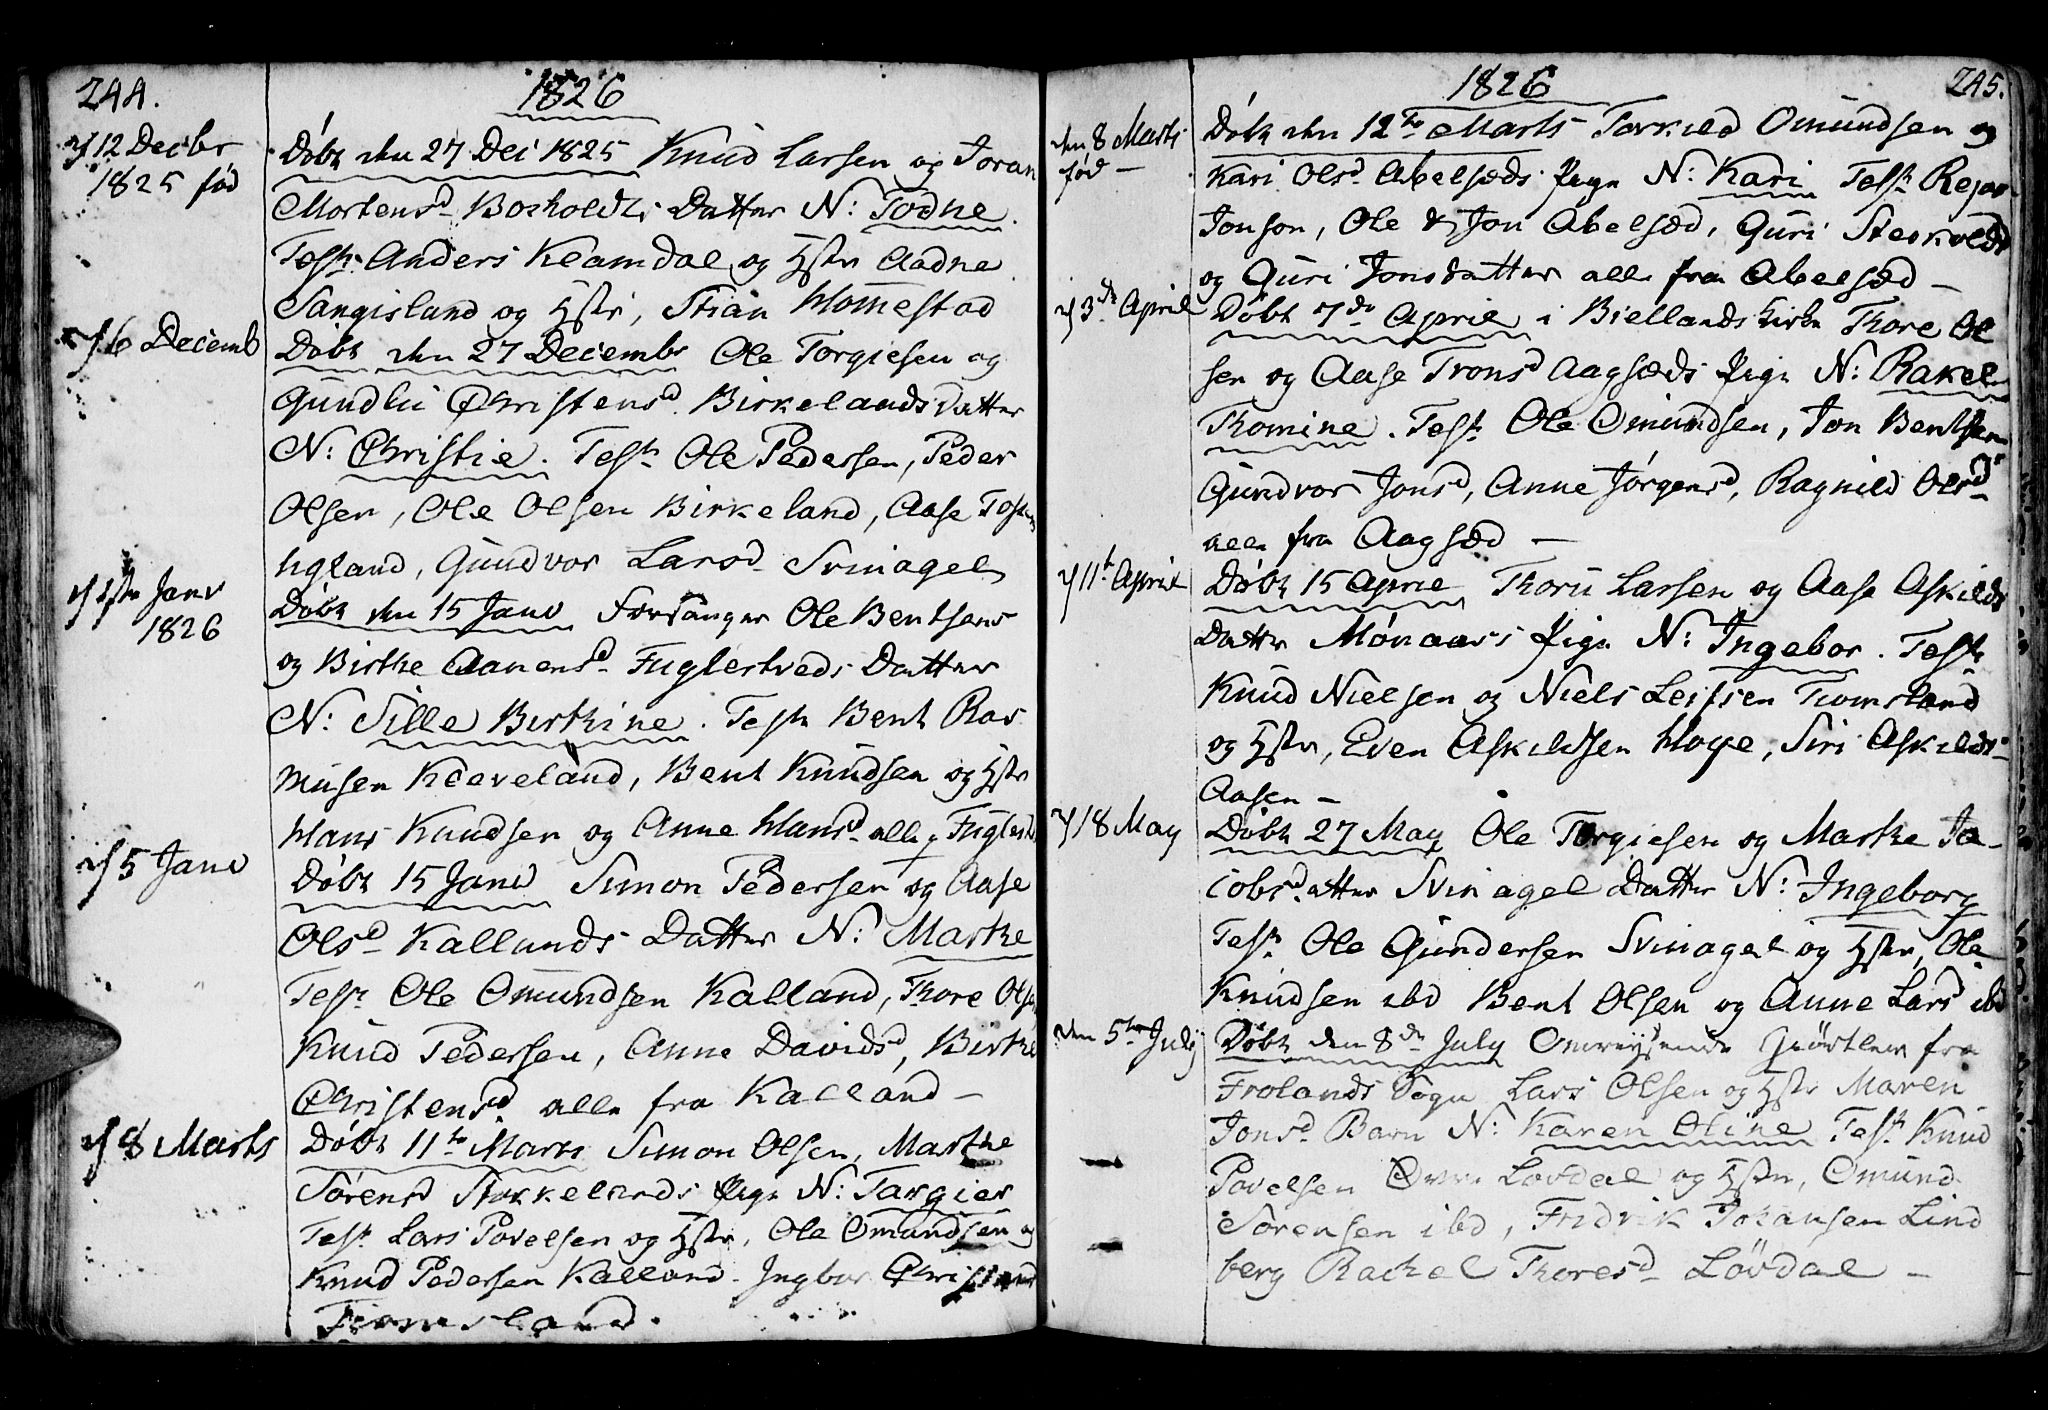 244.
1826
12 Decbr
1825 fød
Døbt den 27 Dec 1825 Knud Larsen og Joran
Mortensd Bosholdts Datter N: Todne.
Test: Anders Kleamdal og Hstr Aadne
Sangesland og Hstr, Stian Homestad
6 Decemb
Døbt den 27 Decembr Ole Torgiesen og
Gundlei Christensd. Birkelands Datter
N: Christie. Test: Ole Pedersen, Peder
Olsen, Ole Olsen Birkeland, Aase
ugland, Gundvor Larsd Svinagel
1ste Janv
1826
Døbt den 15 Janv Forsanger Ole Bentsens
og Birthe Aanensd Fuglestveds Datter
N: Sille Birthine. Test: Bent Ras
musen Kleveland, Bent Knudsen og Hstr
Hans Knudsen og Anne Hansd alle
5 Janv
Døbt 15 Janv Simon Pedersen og Aase
Olsd Kallands Datter N: Marthe
Test: Ole Omundsen Kalland, Thore Olsen
Knud Pedersen, Anne Davidsd, Birthe
Christensd alle fra Kalland –
8 Marts
Døbt 11te Marts Simon Olsen, Marthe
Sørensd Stokkelands Pige N: Targier
Test: Lars Povelsen og Hstr, Ole Omundsen og
Knud Pedersen Kalland. Ingbor
Fiomesland.
1826
245.
den 8 Marts
fød –
Døbt den 12te Marts Torkild Omundsen og
Kari Olsd Abelsæds Pige N: Kari Test:
Jonson, Ole & Jon Abelsæd, Guri
og Guri Jonsdatter alle fra Abelsæd –
3de April
Døbt 7de April i Biellands Kirke Thore Ol
sen og Aase Tronsd Aagsæds Pige N: Rakel
Thomine. Test: Ole Omundsen, Jon Bentsen
Gundvor Jonsd, Anne Jørgensd, Ragnild Olsd
alle fra Aagsæd –
11te April
Døbt 15 April Thoru Larsen og Aase Askilds
Datter Mønaas Pige N: Ingebor. Test:
Knud Nielsen og Niels Leifsen Tiomsland
og Hstr, Even Askildsen Hoye, Siri Askilds-
Aasen –
18 May
Døbt 27 May Ole Torgiesen og Marthe Ja-
cobsdatter Svinagel Datter N: Ingeborg
Test: Ole Gundersen Svinagel og Hstr, Ole
Knudsen ibd Bent Olsen og Anne Larsd ibd
den 5te July
Døbt den 8de July Omreysende Giørtler fra
Frolands Sogn Lars Olsen og Hstr Maren
Jonsd Barn N: Karen Oline Test: Knud
Povelsen Øvre Lovdal og Hstr, Omund
Sørensen ibd, Fredrik Johansen Lind
berg Rachel Thoresd Løvdal –